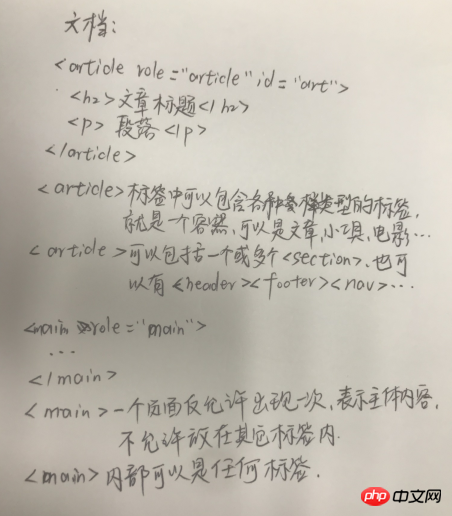 文档:
<article role="article" id="art">
<h2>文章标题</h2>
<p> 段落 </p>
</article>
<article>标签中可以包含各种类型的标签,
就是一个容器,可以是文章,小工具,电影…
<article>可以包括一个或多个<section>、也可
以有<header><footer><nav>…
<main role="main">
...
</main>
<main>一个页面只允许出现一次,表示主体内容,
不允许放在其它标签内.
<main>内部可以是任何标签.
php 中文网